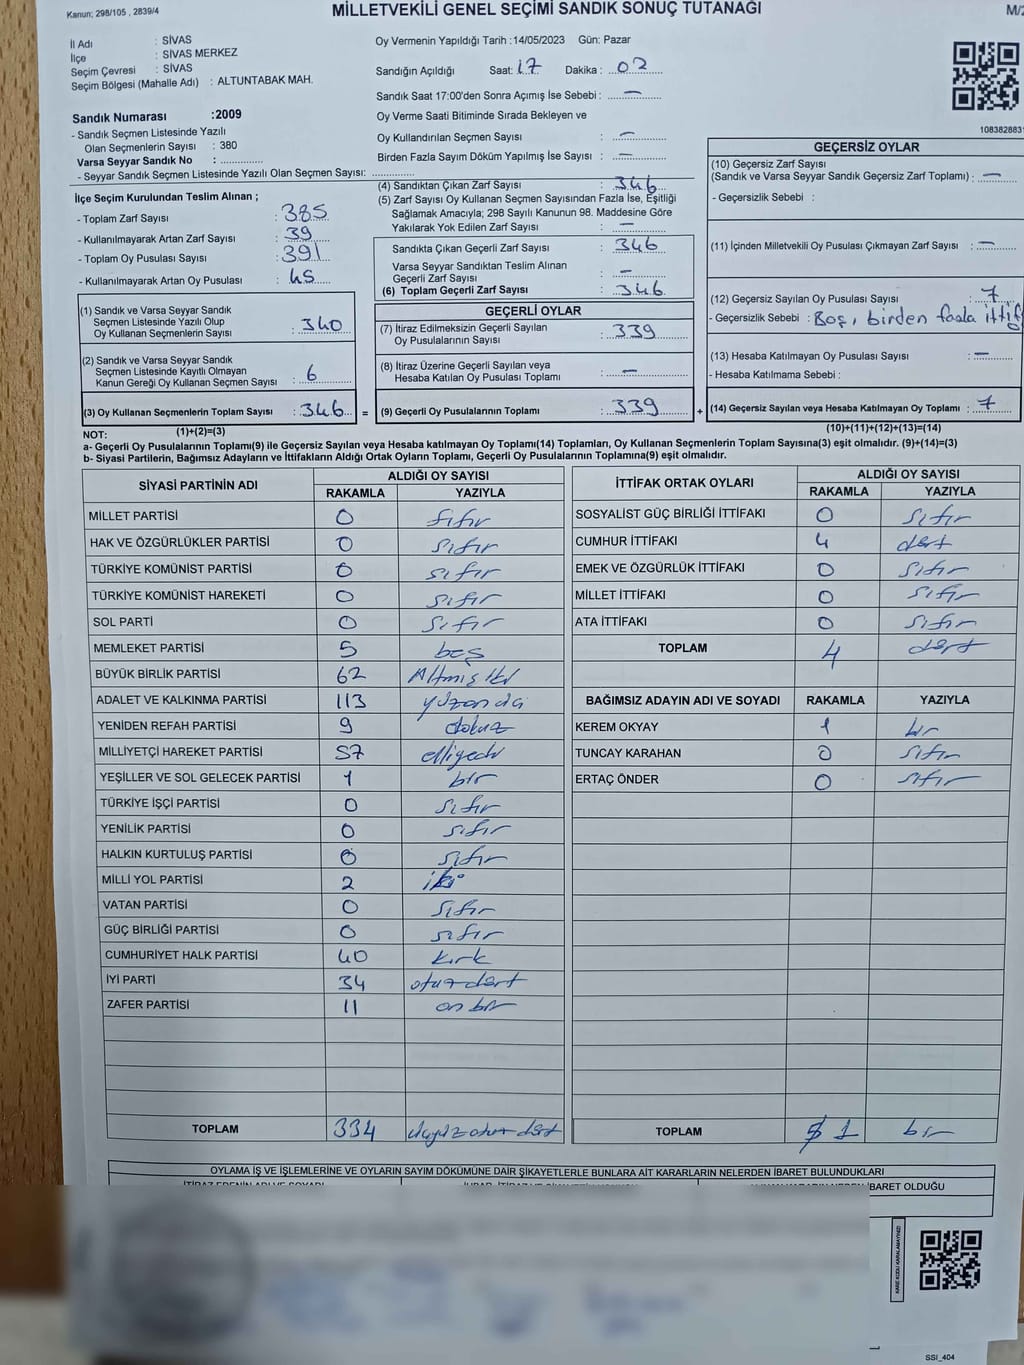 Kanun; 298/105 , 2839/4
MİLLETVEKİLİ GENEL SEÇİMİ SANDIK SONUÇ TUTANAĞI
İl Adı : SİVAS
İlçe : SİVAS MERKEZ
Seçim Çevresi : SİVAS
Seçim Bölgesi (Mahalle Adı) : ALTUNTABAK MAH.
Oy Vermenin Yapıldığı Tarih :14/05/2023 Gün: Pazar
Sandığın Açıldığı Saat: 17 Dakika : 02
Sandık Saat 17:00'den Sonra Açımış İse Sebebi : —
Oy Verme Saati Bitiminde Sırada Bekleyen ve
Oy Kullandırılan Seçmen Sayısı : —
Birden Fazla Sayım Döküm Yapılmış İse Sayısı : —
Sandık Numarası :2009
- Sandık Seçmen Listesinde Yazılı
Olan Seçmenlerin Sayısı : 380
Varsa Seyyar Sandık No :
- Seyyar Sandık Seçmen Listesinde Yazılı Olan Seçmen Sayısı:
İlçe Seçim Kurulundan Teslim Alınan ;
- Toplam Zarf Sayısı : 385
- Kullanılmayarak Artan Zarf Sayısı : 39
- Toplam Oy Pusulası Sayısı : 391
- Kullanılmayarak Artan Oy Pusulası : 45
(1) Sandık ve Varsa Seyyar Sandık
Seçmen Listesinde Yazılı Olup
Oy Kullanan Seçmenlerin Sayısı : 340
(2) Sandık ve Varsa Seyyar Sandık
Seçmen Listesinde Kayıtlı Olmayan
Kanun Gereği Oy Kullanan Seçmen Sayısı : 6
(3) Oy Kullanan Seçmenlerin Toplam Sayısı : 346 =
(1)+(2)=(3)
(4) Sandıktan Çıkan Zarf Sayısı : 346
(5) Zarf Sayısı Oy Kullanan Seçmen Sayısından Fazla İse, Eşitliği
Sağlamak Amacıyla; 298 Sayılı Kanunun 98. Maddesine Göre
Yakılarak Yok Edilen Zarf Sayısı : —
Sandıkta Çıkan Geçerli Zarf Sayısı : 346
Varsa Seyyar Sandıktan Teslim Alınan
Geçerli Zarf Sayısı : —
(6) Toplam Geçerli Zarf Sayısı : 346
GEÇERLİ OYLAR
(7) İtiraz Edilmeksizin Geçerli Sayılan
Oy Pusulalarının Sayısı : 339
(8) İtiraz Üzerine Geçerli Sayılan veya
Hesaba Katılan Oy Pusulası Toplamı : —
(9) Geçerli Oy Pusulalarının Toplamı : 339 +
GEÇERSİZ OYLAR
(10) Geçersiz Zarf Sayısı
(Sandık ve Varsa Seyyar Sandık Geçersiz Zarf Toplamı) : —
- Geçersizlik Sebebi :
(11) İçinden Milletvekili Oy Pusulası Çıkmayan Zarf Sayısı : —
(12) Geçersiz Sayılan Oy Pusulası Sayısı : 7
- Geçersizlik Sebebi : Boş, birden fazla ittif
(13) Hesaba Katılmayan Oy Pusulası Sayısı : —
- Hesaba Katılmama Sebebi :
(14) Geçersiz Sayılan veya Hesaba Katılmayan Oy Toplamı : 7
(10)+(11)+(12)+(13)=(14)
NOT:
a- Geçerli Oy Pusulalarının Toplamı(9) ile Geçersiz Sayılan veya Hesaba katılmayan Oy Toplamı(14) Toplamları, Oy Kullanan Seçmenlerin Toplam Sayısına(3) eşit olmalıdır. (9)+(14)=(3)
b- Siyasi Partilerin, Bağımsız Adayların ve İttifakların Aldığı Ortak Oyların Toplamı, Geçerli Oy Pusulalarının Toplamına(9) eşit olmalıdır.
SİYASİ PARTİNİN ADI ALDIĞI OY SAYISI
RAKAMLA YAZIYLA
MİLLET PARTİSİ 0 sıfır
HAK VE ÖZGÜRLÜKLER PARTİSİ 0 sıfır
TÜRKİYE KOMÜNİST PARTİSİ 0 sıfır
TÜRKİYE KOMÜNİST HAREKETİ 0 sıfır
SOL PARTİ 0 sıfır
MEMLEKET PARTİSİ 5 beş
BÜYÜK BİRLİK PARTİSİ 62 Altmış iki
ADALET VE KALKINMA PARTİSİ 113
YENİDEN REFAH PARTİSİ 9 dokuz
MİLLİYETÇİ HAREKET PARTİSİ 57 elliyedi
YEŞİLLER VE SOL GELECEK PARTİSİ 1 bir
TÜRKİYE İŞÇİ PARTİSİ 0 sıfır
YENİLİK PARTİSİ 0 sıfır
HALKIN KURTULUŞ PARTİSİ 0 sıfır
MİLLİ YOL PARTİSİ 2 iki
VATAN PARTİSİ 0 sıfır
GÜÇ BİRLİĞİ PARTİSİ 0 sıfır
CUMHURİYET HALK PARTİSİ 40 kırk
İYİ PARTİ 34 otuz dört
ZAFER PARTİSİ 11 on bir
TOPLAM 334 üçyüz otuz dört
İTTİFAK ORTAK OYLARI ALDIĞI OY SAYISI
RAKAMLA YAZIYLA
SOSYALİST GÜÇ BİRLİĞİ İTTİFAKI 0 sıfır
CUMHUR İTTİFAKI 4 dört
EMEK VE ÖZGÜRLÜK İTTİFAKI 0 sıfır
MİLLET İTTİFAKI 0 sıfır
ATA İTTİFAKI 0 sıfır
TOPLAM 4 dört
BAĞIMSIZ ADAYIN ADI VE SOYADI RAKAMLA YAZIYLA
KEREM OKYAY 1 bir
TUNCAY KARAHAN 0 sıfır
ERTAÇ ÖNDER 0 sıfır
TOPLAM 1 bir
OYLAMA İŞ VE İŞLEMLERİNE VE OYLARIN SAYIM DÖKÜMÜNE DAİR ŞİKAYETLERLE BUNLARA AİT KARARLARIN NELERDEN İBARET BULUNDUKLARI
İBARET OLDUĞU
KARE KODU KARALAMAYINIZ!
SSI_404